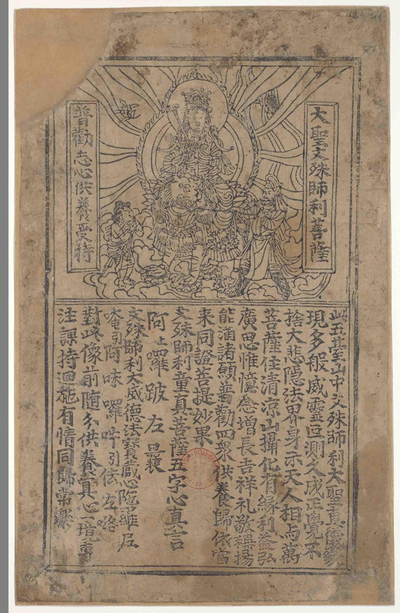 大聖文殊師利菩薩
普勸志心供養受持
此五臺山中文殊師利大聖真儀變
現多般威靈叵測久成正覺不
捨大悲隱法界身示天人相與萬
菩薩住清涼山攝化有緣利益弘
廣思惟憶念增長吉祥礼敬稱揚
能滿諸願普勸四衆供養歸依當
來同證菩提妙果
文殊師利童真菩薩五字心真言
阿上 囉 跛 左 曩
文殊師利大威德法寶藏心陁羅尼
唵引阿味囉吽引佉左洛
對此像前隨分供養冥心一境專
注課持迴施有情同歸常樂